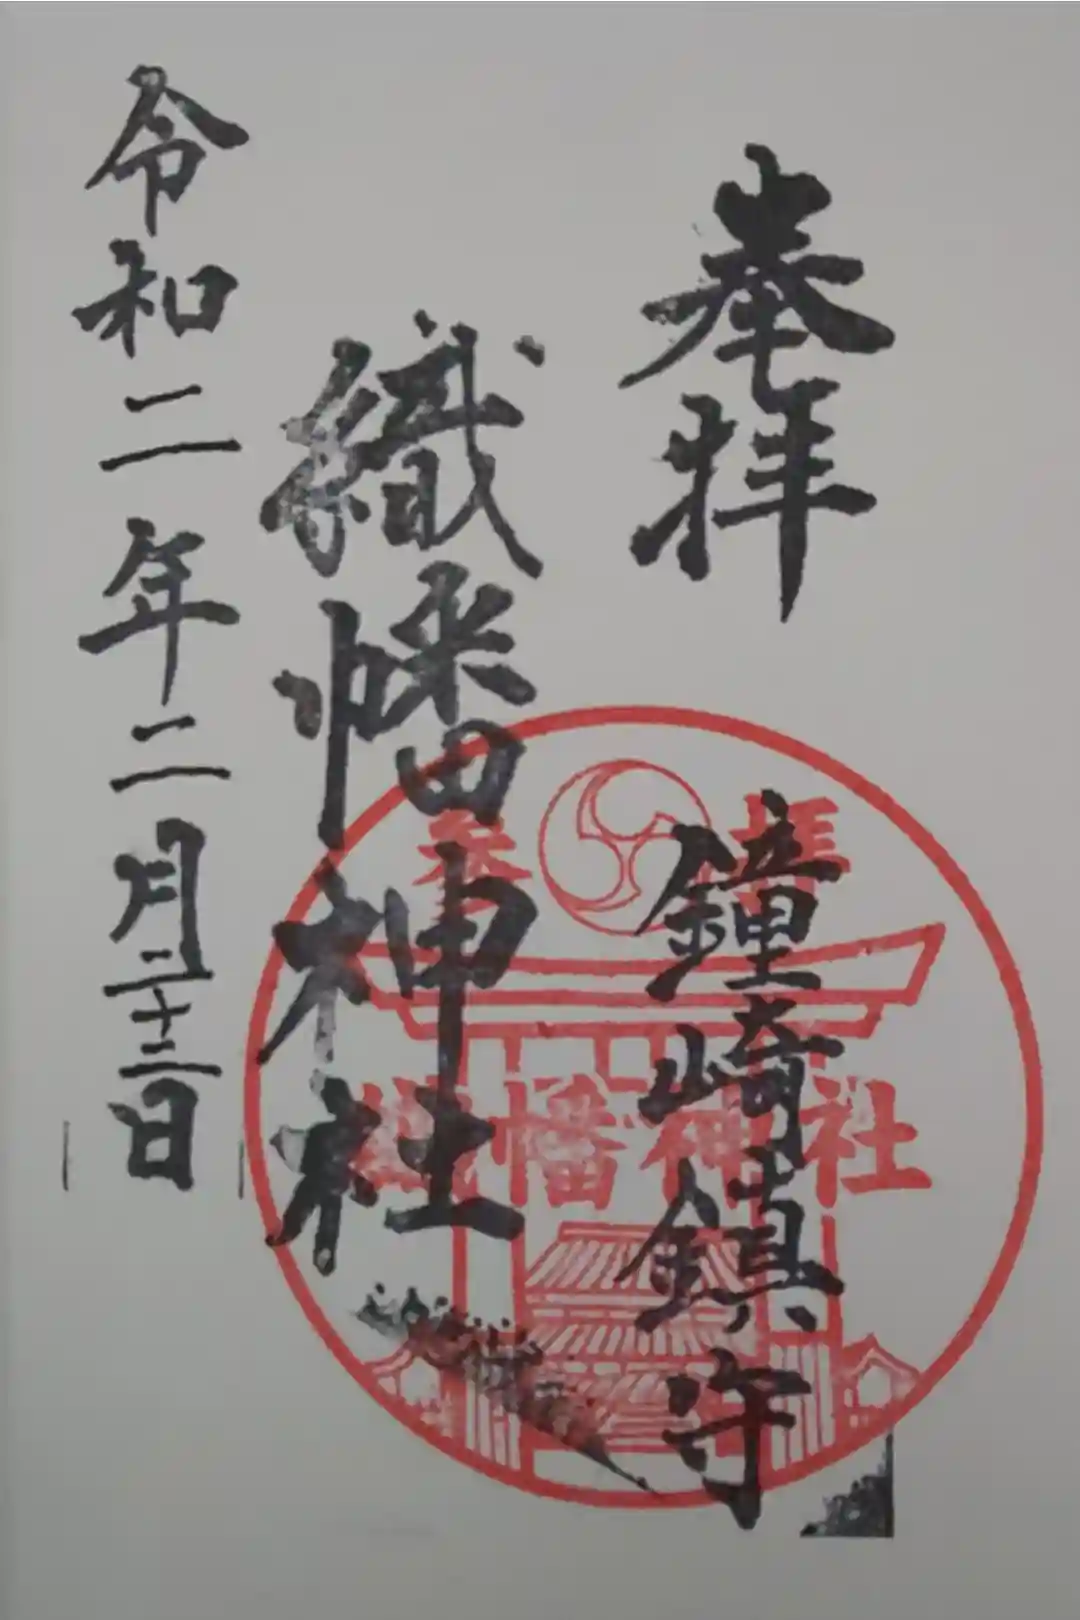 奉拝
鐘崎鎮守
織幡神社
令和二年二月二十二日
織幡神社